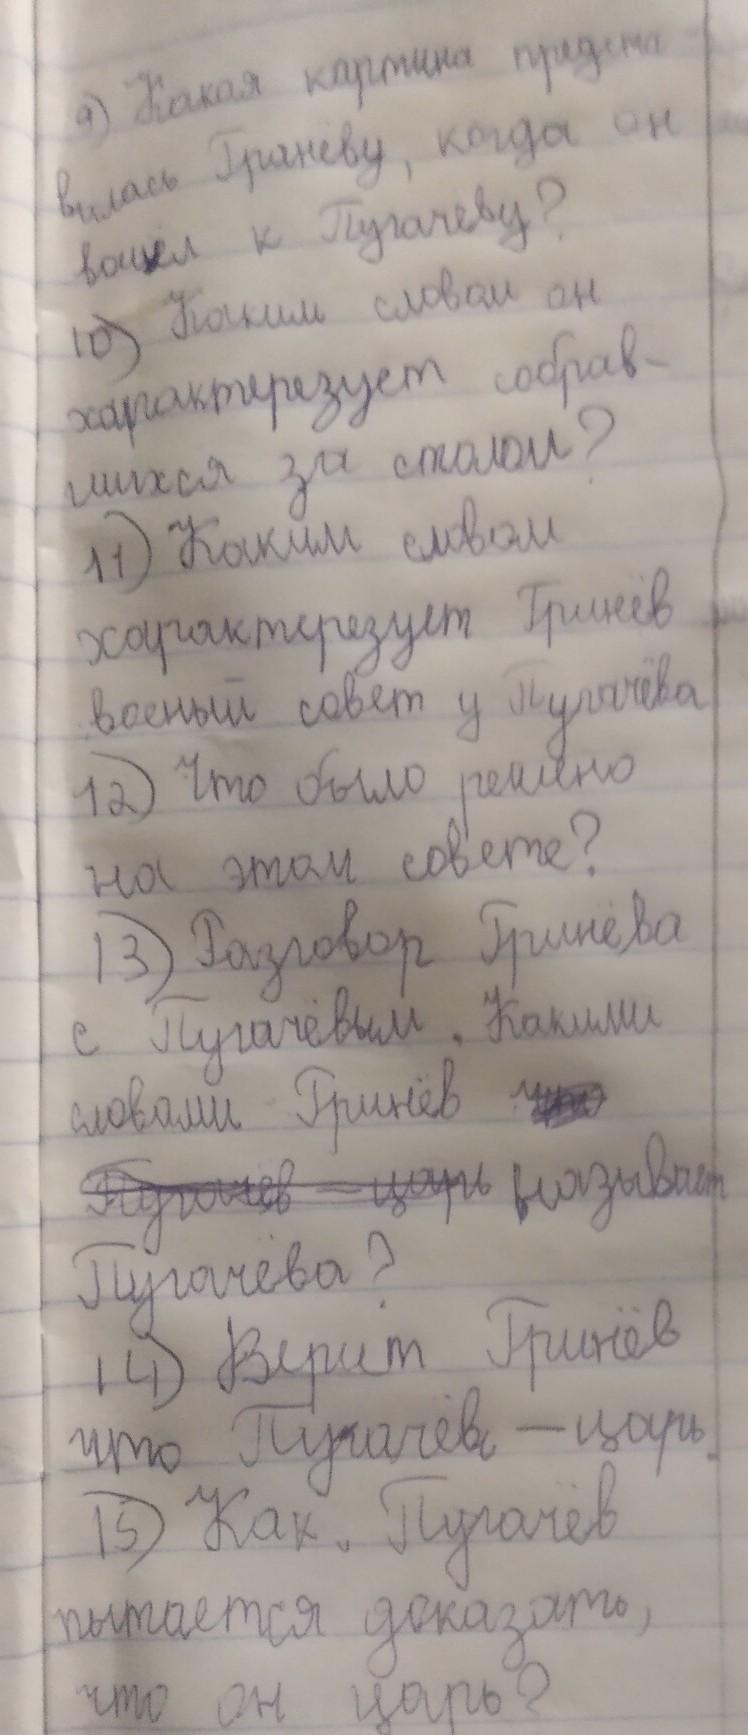 9) Какая картина предста-
вилась Гринёву, когда он
вошёл к Пугачеву?
10) Каким словом он
характерезует собрав-
шихся за столом?
11) Каким словом
характерезует Гринёв
военый совет у Пугачёва
12) Что было решено
на этом совете?
13) Разговор Гринёва
с Пугачёвым. Какими
словами Гринёв
Пугачёв - царь называет
Пугачёва?
14) Верит Гринёв
что Пугачёв - царь.
15) Как Пугачёв
пытается доказать,
что он царь?